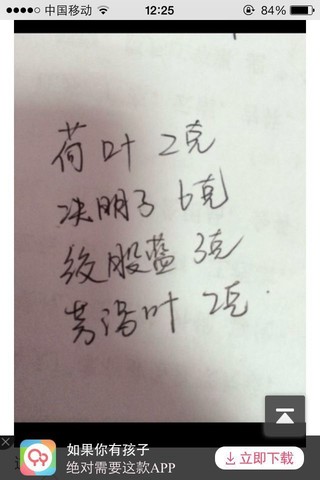 中国移动 12:25 84%
荷叶 2克
决明子 6克
绞股蓝 3克
叶 2克.
如果你有孩子
绝对需要这款APP
立即下载